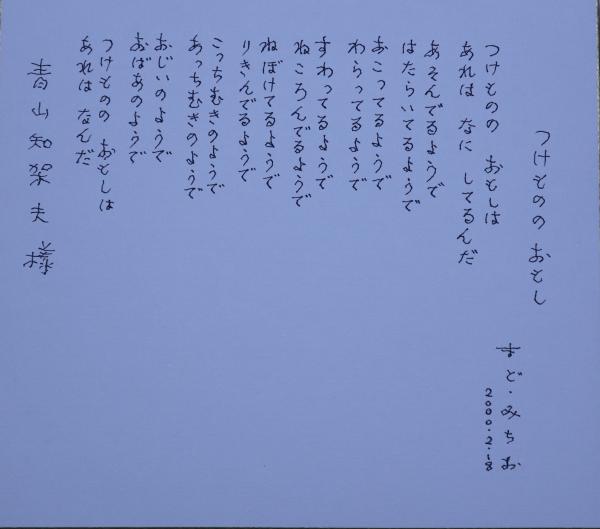 つけものの おもし
まど・みちお
2000.2.18
つけものの おもしは
あれは なに してるんだ
あそんでるようで
はたらいてるようで
おこってるようで
わらってるようで
すわってるようで
ねころんでるようで
ねぼけてるようで
りきんでるようで
こっちむきのようで
あっちむきのようで
おじいのようで
おばあのようで
つけものの おもしは
あれは なんだ
青山知架夫様